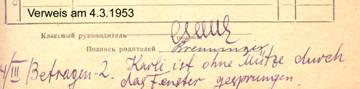 Verweis am 4.3.1953
Классный руководитель
Подпись родителей Brenninger
4/III Betragen-2. Karli ist ohne Mütze durch
das Fenster gesprungen.